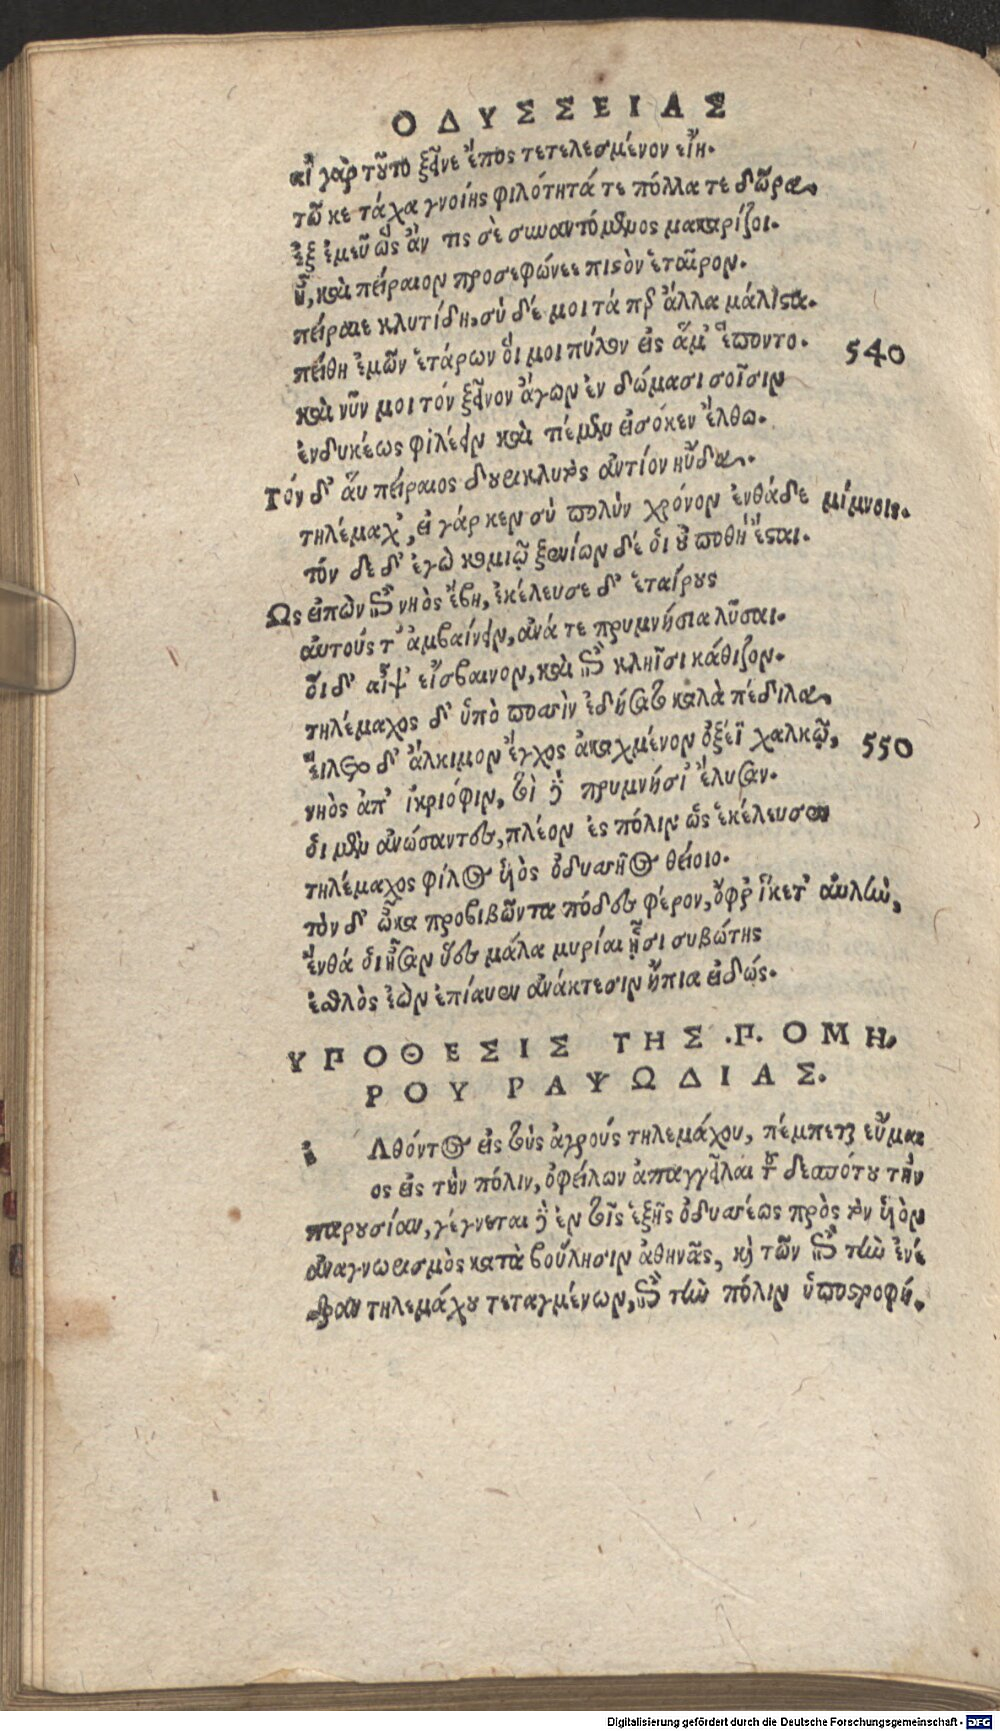 ΟΔΥΣΣΕΙΑΣ
αἲ γὰρ τοῦτο ξεῖνε ἔπος τετελεσμένον εἴη.
τῶ κε τάχα γνοίης φιλότητά τε πόλλα τε δῶρα,
ἐξ ἐμεῦ ὡς ἄν τις σὲ συναντόμενος μακαρίζοι.
ἦ, καὶ πείραιον προσεφώνεε πιστὸν ἑταῖρον.
πείραιε κλυτίδη, σὺ δέ μοι τά περ ἄλλα μάλιστα.
πείθη ἐμῶν ἑτάρων οἵ μοι πύλον εἰς ἅμ' ἕποντο. 540
καὶ νῦν μοι τόν ξεῖνον ἄγων ἐν δώμασι σοῖσιν
ἐνδυκέως φιλέειν καὶ τιέμεν εἰσόκεν ἔλθω.
Τόν δ' αὖ πείραιος δουρικλυτὸς ἀντίον ηὔδα.
τηλέμαχ', εἰ γάρ κεν σὺ πολὺν χρόνον ἐνθάδε μίμνοις.
τόν δε δ' ἐγὼ κομιῶ ξενίων δέ οἱ οὐ ποθὴ ἔσται.
Ως εἰπὼν ἐπὶ νηὸς ἔβη, ἐκέλευσε δ' ἑταίρους
αὐτούς τ' ἀμβαίνειν, ἀνά τε πρυμνήσια λῦσαι.
οἵ δ' αἶψ' εἴσβαινον, καὶ ἐπὶ κληῖσι κάθιζον.
τηλέμαχος δ' ὑπὸ ποσσὶν ἐδήσατο καλὰ πέδιλα,
εἵλετο δ' ἄλκιμον ἔγχος ἀκαχμένον ὀξέϊ χαλκῷ, 550
νηὸς ἀπ' ἰκριόφιν, τοὶ δὲ πρυμνήσι' ἔλυσαν.
οἱ μὲν ἀνώσαντες, πλέον ἐς πόλιν ὡς ἐκέλευσεν
τηλέμαχος φίλος υἱὸς ὀδυσσῆος θείοιο.
τὸν δ' ὦκα προβιβῶντα πόδες φέρον, ὄφρ' ἵκετ' αὐλὴν,
ἔνθά οἱ ἦσαν ὕες μάλα μυρίαι ᾗσι συβώτης
ἐσθλὸς ἐὼν ἐπίαυεν ἀνάκτεσιν ἤπια εἰδώς.
ΥΠΟΘΕΣΙΣ ΤΗΣ .Π. ΟΜΗ,
ΡΟΥ ΡΑΨΩΔΙΑΣ.
ἐ Λθόντος εἰς τοὺς ἀγροὺς τηλεμάχου, πέμπεται εὔμαι
ος εἰς τὴν πόλιν, ὀφείλων ἀπαγγεῖλαι τοῦ δεσπότου τὴν
παρουσίαν, γέγνεται δὲ ἐν τοῖς ἑξῆς ὀδυσσέως πρὸς τὸν υἱὸν
ἀναγνωρισμὸς κατὰ βούλησιν ἀθηνᾶς, καὶ τῶν ἐπὶ τὴν ἐνέ
δραν τηλεμάχου τεταγμένων, ἐπὶ τὴν πόλιν ὑποστροφή.
Digitalisierung gefördert durch die Deutsche Forschungsgemeinschaft - DFG